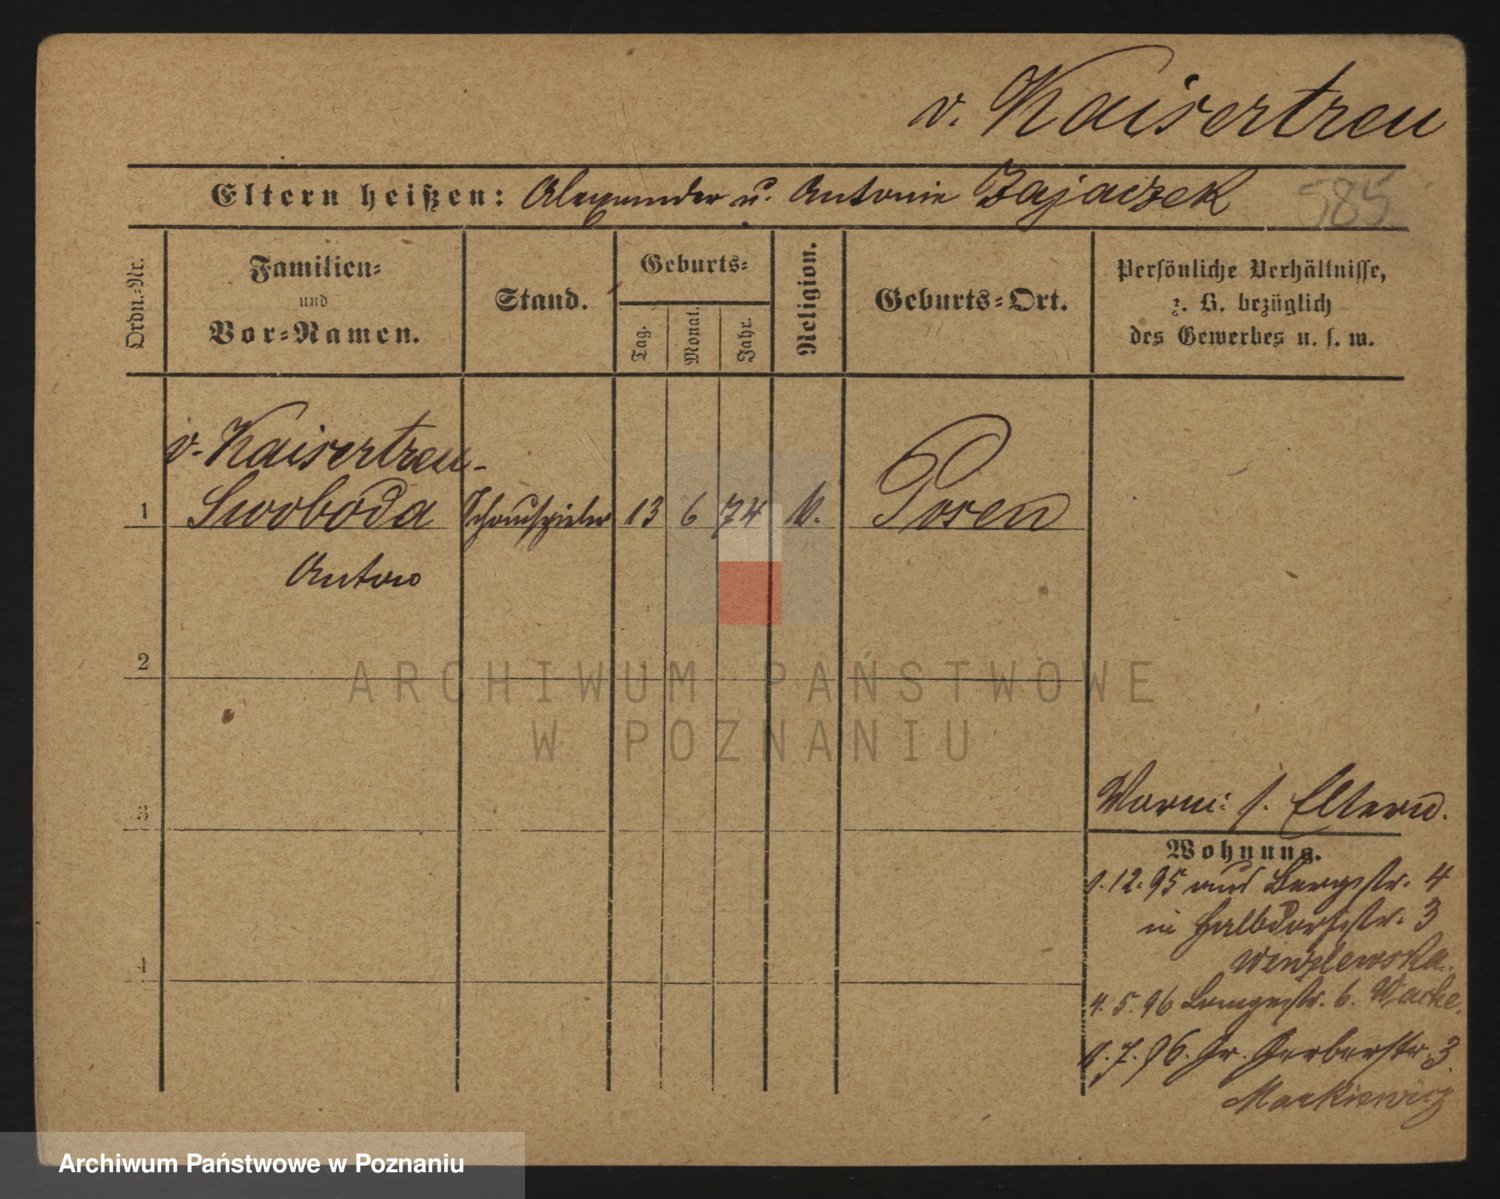 v. Kaisertreu
Eltern heißen: Alexander u. Antonie Zajaczek 585
Ordn.-Nr.
Familien-
und
Vor-Namen.
Stand.
Geburts-
Tag.
Monat.
Jahr.
Religion.
Geburts-Ort.
Persönliche Verhältnisse,
z. B. bezüglich
des Gewerbes u. s. w.
v. Kaisertreu-
1 Swoboda Schauspieler 13 6 74 k. Posen
Anton
2
3
4
Vorm: s. Eltern.
Wohnung.
1.12.95 aus Bergstr. 4
in Halbdorfstr. 3
4.5.96 Langestr. 6. Warke.
1.7.96. Gr. Gerberstr. 3
Mackiewicz
ARCHIWUM PAŃSTWOWE
W POZNANIU
Archiwum Państwowe w Poznaniu